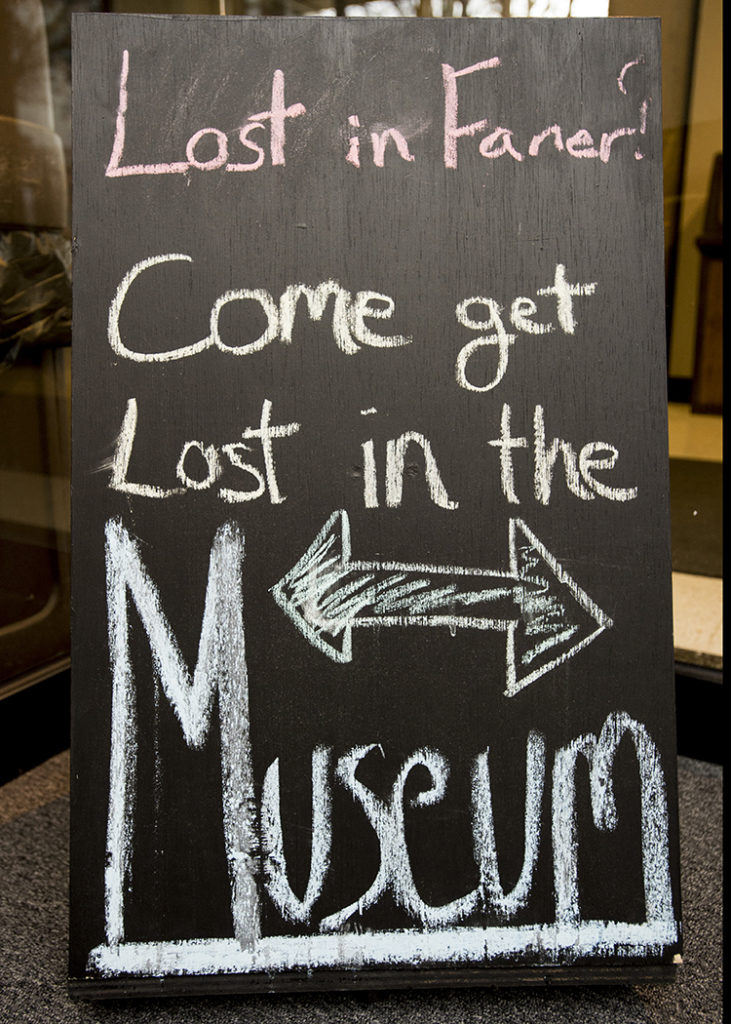 Lost in Faner?
Come get
Lost in the
Museum